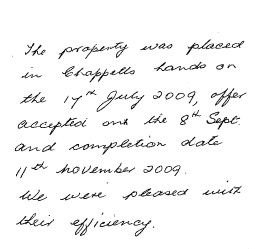 The property was placed
in Chappells hands on
the 17th July 2009, offer
accepted on the 8th Sept.
and completion date
11th November 2009.
We were pleased with
their efficiency.